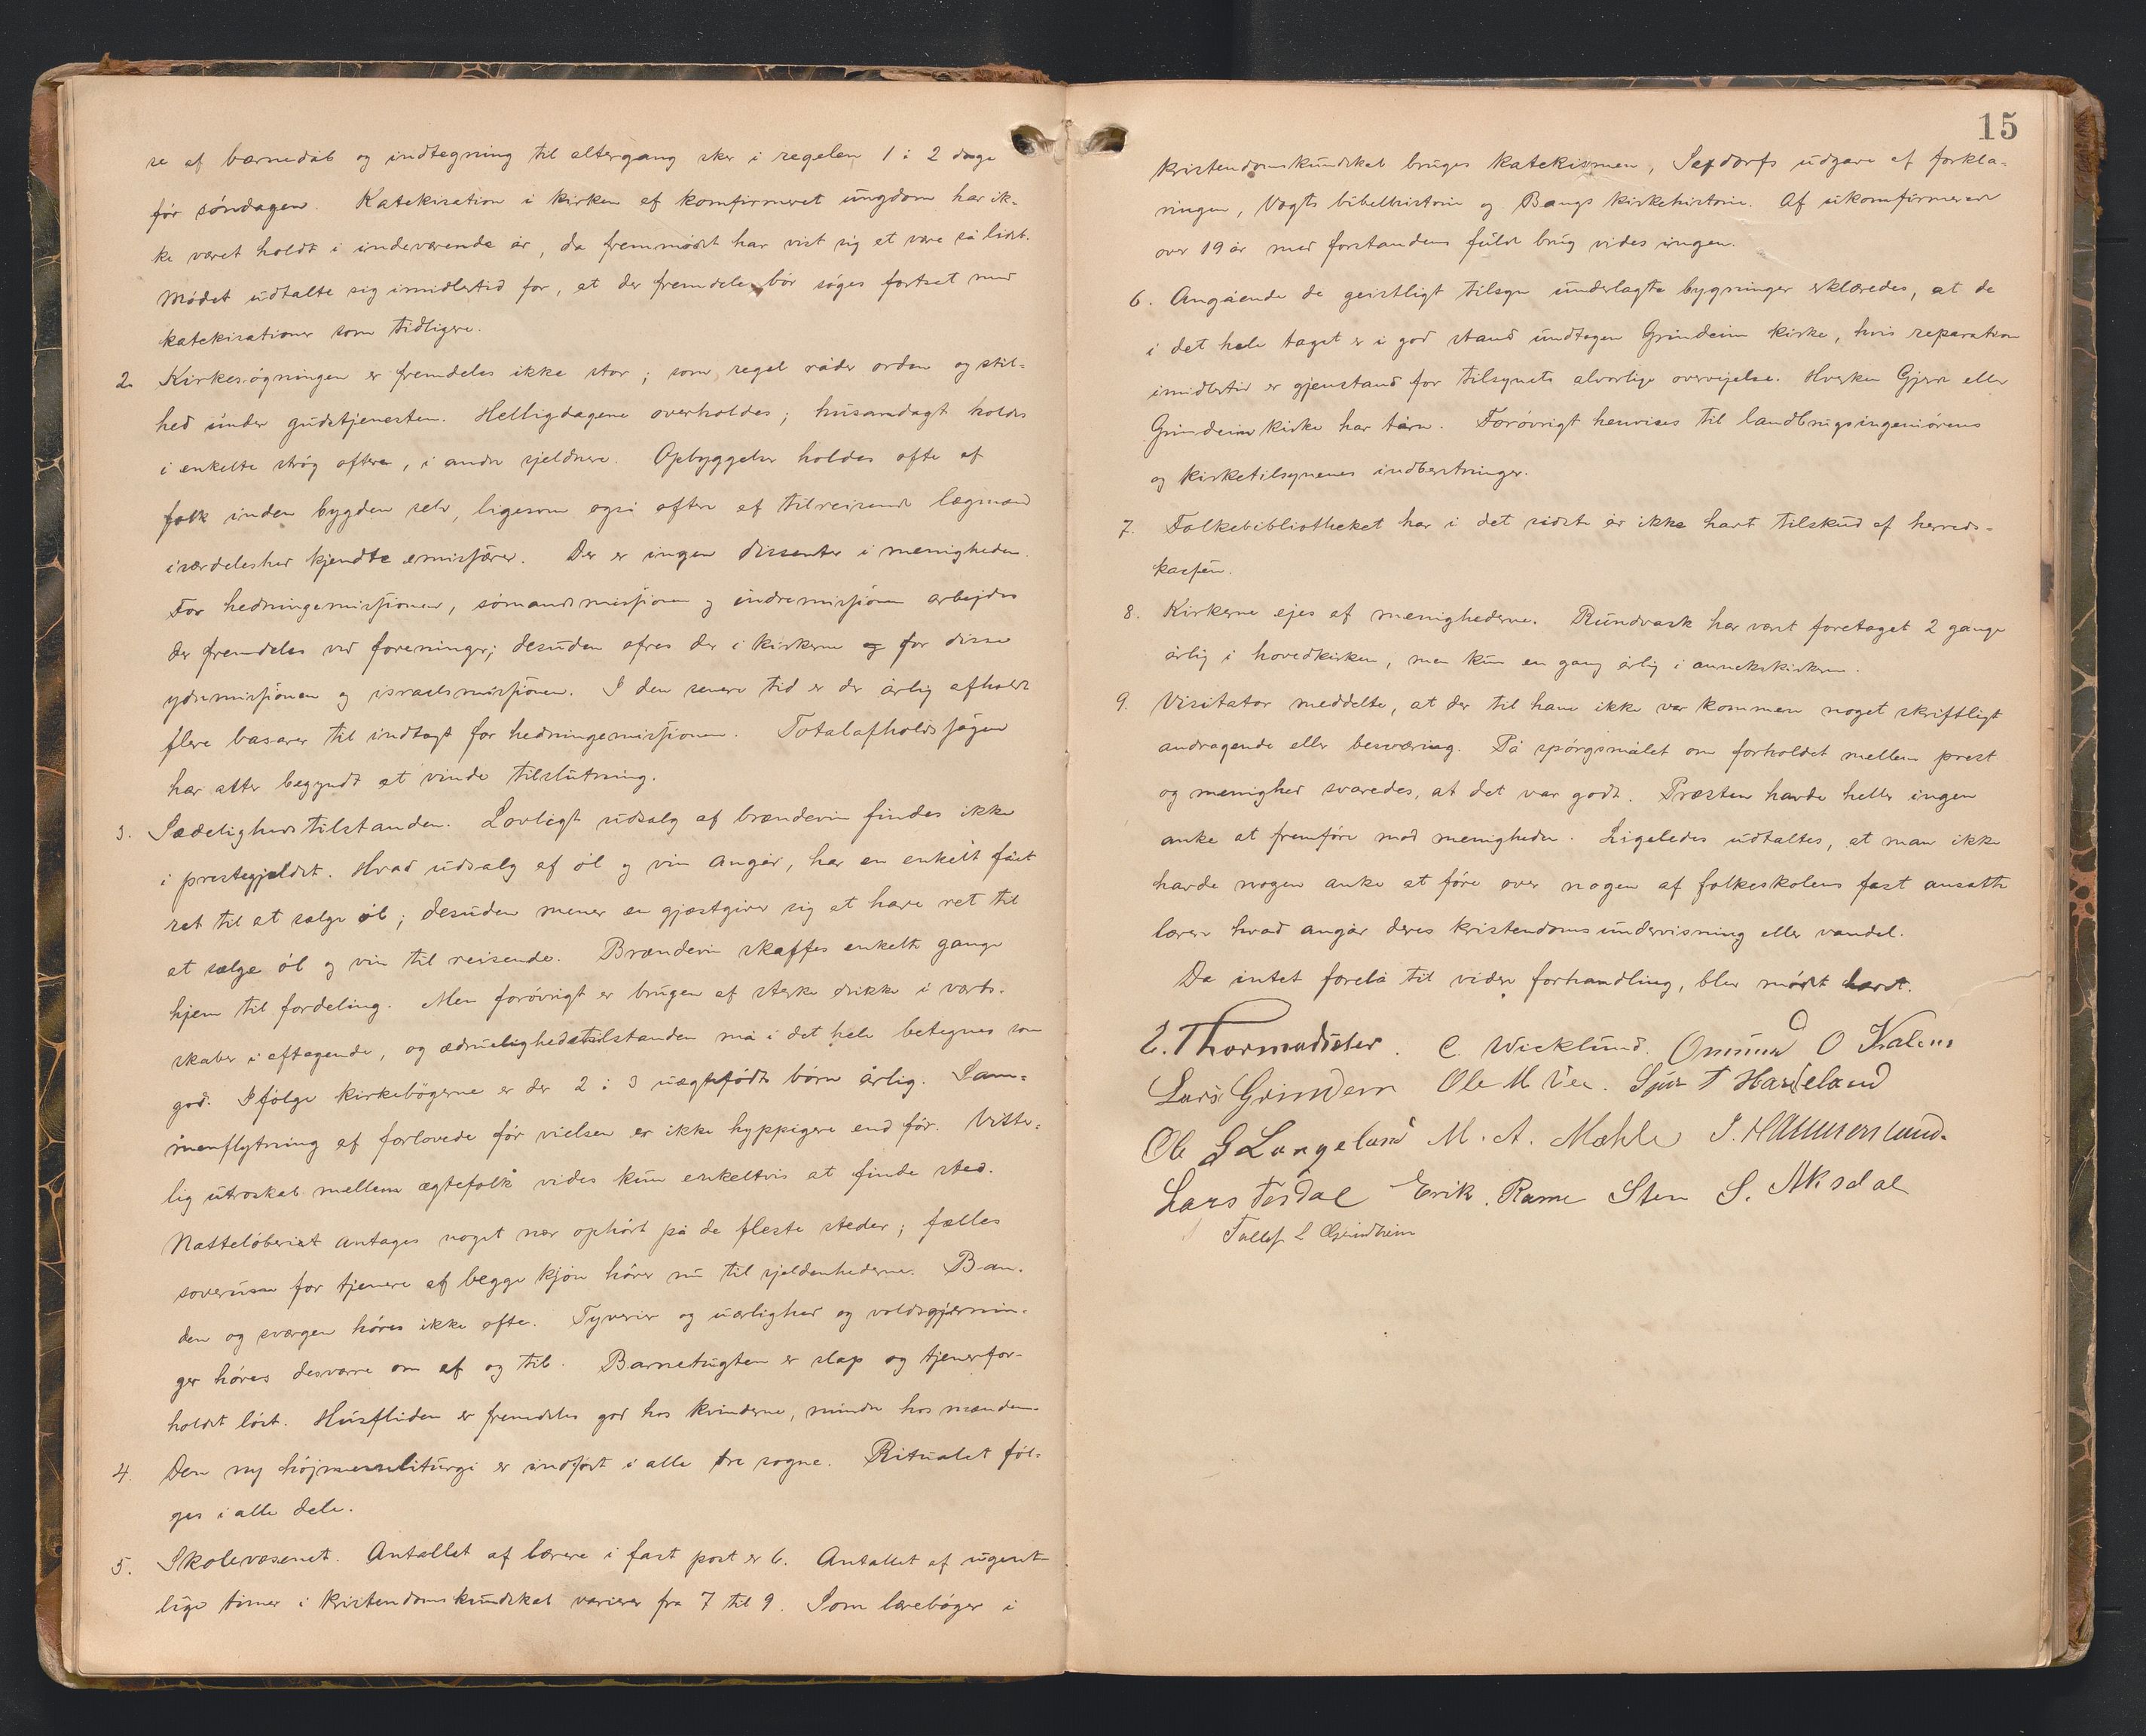 se af barnedåb og indtegning til altergang sker i regelen 1 à 2 dage
før søndagen. Katekisation i kirken af konfirmeret ungdom har ik-
ke været holdt i indeværende år, da fremmødet har vist sig at være så lidet.
Mødet udtalte sig imidlertid for, at der fremdeles bør søges fortsat med
katekisationer som tidligere.
2. Kirkesøgningen er fremdeles ikke stor; som regel råder orden og stil-
hed under gudstjenesten. Helligdagene overholdes; husandagt holdes
i enkelte strøg oftere, i andre sjeldnere. Opbyggelser holdes ofte af
folk inden bygden selv, ligesom også oftere af tilreisende lægmænd
isærdeleshed kjendte emissærer. Der er ingen dissenter i menigheden.
For hedningemissionen, sømandsmissionen og indremissionen arbejdes
der fremdeles ved foreninger; desuden ofres der i kirkerne og for disse
ydremissionen og israelsmissionen. I den senere tid er der årlig afholdt
flere basarer til indtægt for hedningemissionen. Totalafholdssagen
har atter begyndt at vinde tilslutning.
3. Sædelighedstilstanden. Lovligt udsalg af brændevin findes ikke
i prestegjeldet. Hvad udsalg af øl og vin angår, har en enkelt fået
ret til at sælge øl; desuden mener en gjæstgiver sig at have ret til
at sælge øl og vin til reisende. Brændevin skaffes enkelte gange
hjem til fordeling. Men forøvrigt er brugen af sterke drikke i værts-
skaber i aftagende, og ædruelighedstilstanden må i det hele betegnes som
god. Ifølge kirkebøgerne er der 2 à 3 uægtefødte børn årlig. Sam-
menflytning af forlovede før vielsen er ikke hyppigere end før. Vitter-
lig utroskab mellem ægtefolk vides kun enkeltvis at finde sted.
Natteløberiet antages noget nær ophørt på de fleste steder; fælles
soverum for tjenere af begge kjøn hører nu til sjeldenhederne. Ban-
den og sværgen høres ikke ofte. Tyverier og uærlighed og voldsgjernin-
ger høres desværre om af og til. Barnetugten er slap og tjenerfor-
holdet løst. Husfliden er fremdeles god hos kvinderne, mindre hos mændene.
4. Den ny højmesseliturgi er indført i alle tre sogne. Ritualet føl-
ges i alle dele.
5. Skolevæsenet. Antallet af lærere i fast post er 6. Antallet af ugent-
lige timer i kristendomskundskab varierer fra 7 til 9. Som lærebøger i
15
kristendomskundskab bruges katekismen, Sexdorfs udgave af forkla-
ringen, Vogts bibelhistorie og Bangs kirkehistorie. Af ukonfirmerede
over 19 år med forstandens fulde brug vides ingen.
6. Angående de geistligt tilsyn underlagte bygninger erklæredes, at de
i det hele taget er i god stand undtagen Grindeim kirke, hvis reparation
imidlertid er gjenstand for tilsynets alvorlige overvejelse. Hverken Gjerde eller
Grindeim kirke har tårn. Forøvrigt henvises til landbrugsingeniørens
og kirketilsynenes indberetninger.
7. Folkebibliotheket har i det sidste år ikke havt tilskud af herreds-
kassen.
8. Kirkerne ejes af menighederne. Rundvask har været foretaget 2 gange
årlig i hovedkirken, men kun en gang årlig i annekskirkerne.
9. Visitator meddelte, at der til ham ikke var kommen noget skriftligt
andragende eller besværing. På spørgsmålet om forholdet mellem prest
og menighed svaredes, at det var godt. Præsten havde heller ingen
anke at fremføre mod menigheden. Ligeledes udtaltes, at man ikke
havde nogen anke at føre over nogen af folkeskolens fast ansatte
lærere hvad angår deres kristendomsundervisning eller vandel.
Da intet forelå til videre forhandling, blev mødet hævet.
C. Wicklund. Omund O
Lars Grindem Ole M Vee. Sjur T Handeland
Ole G Langeland M. A. Mæhle J. Hammersland.
Lars Tesdal Erik Ramse Sten S. Aksdal
Tollef L Grindheim